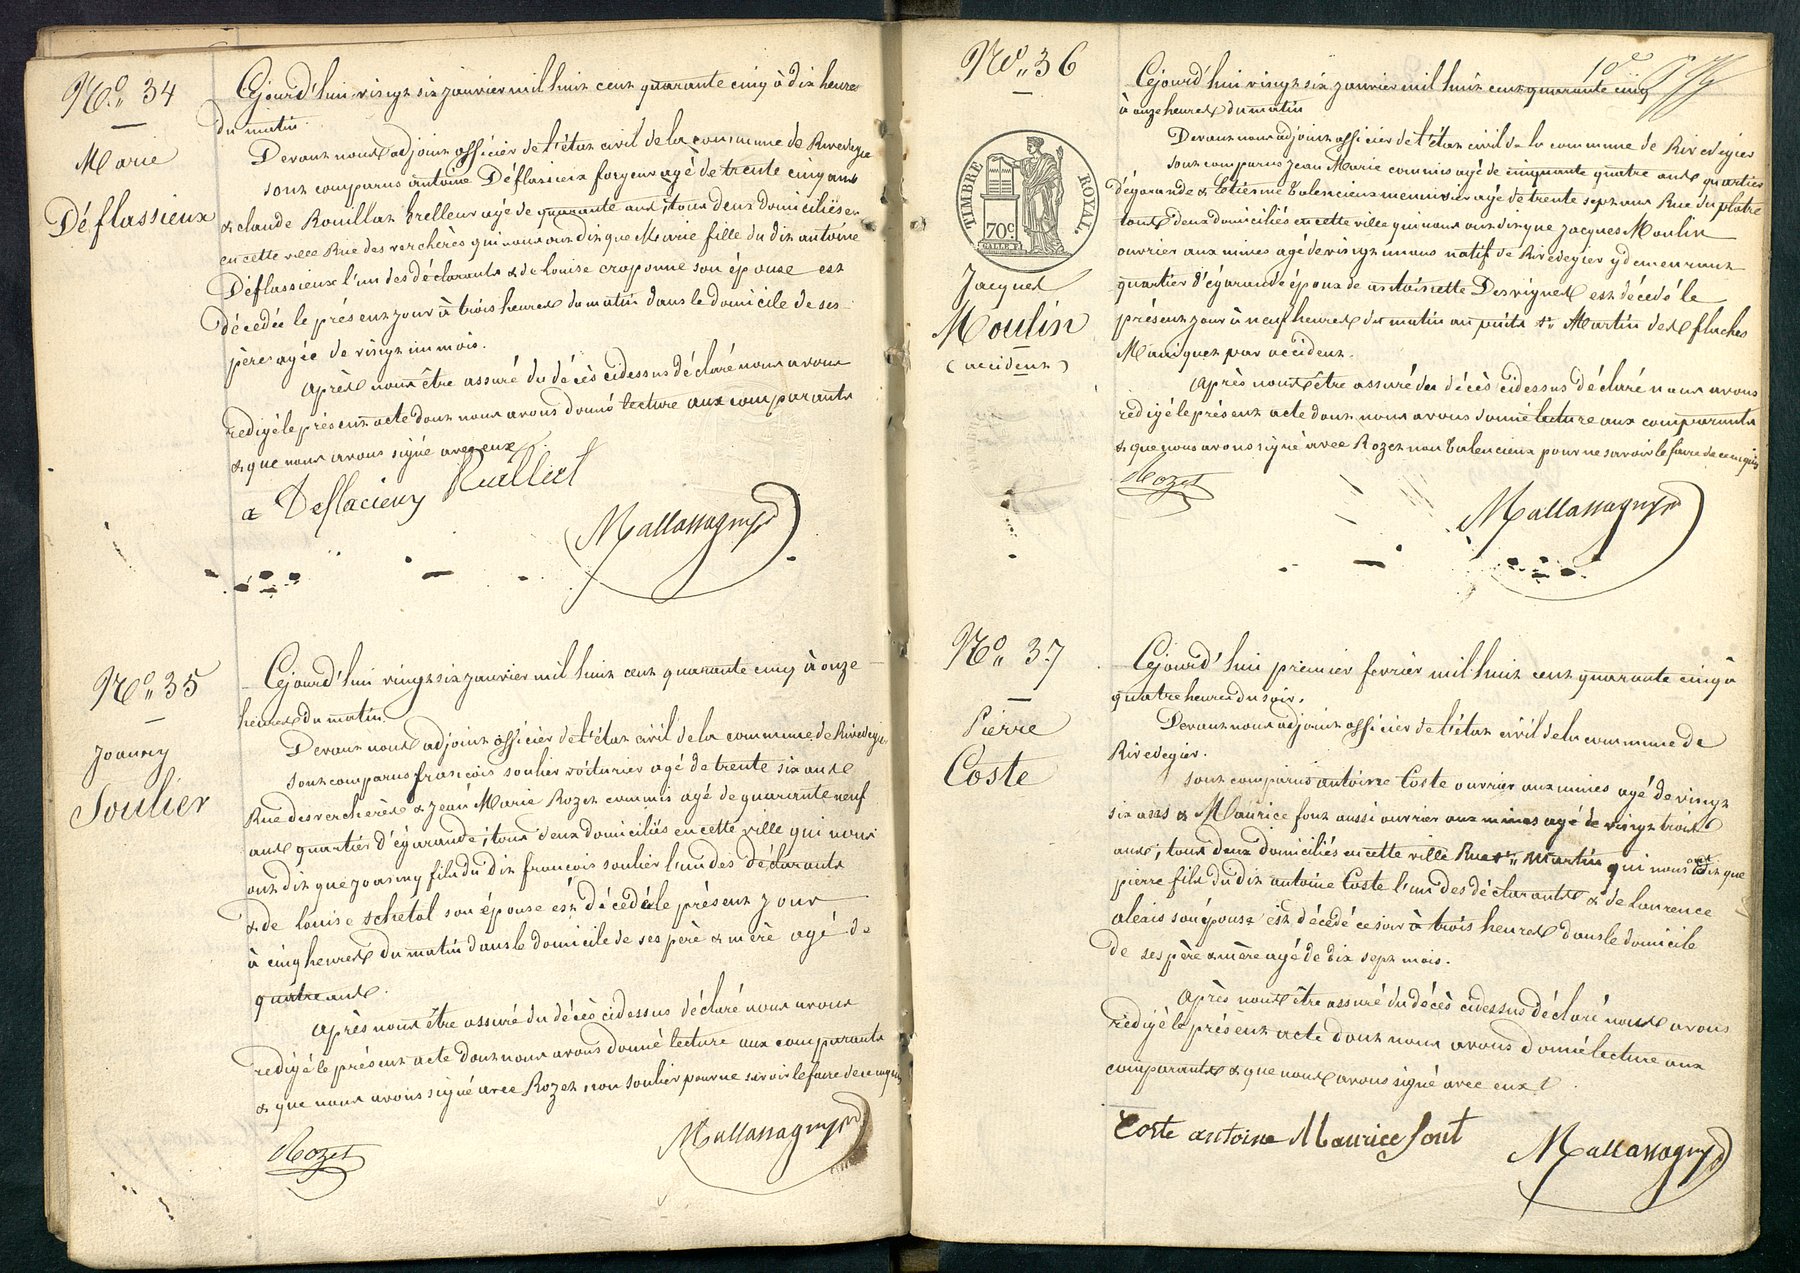 N.° 34
Marie
Déflassieux
Cejourd'hui vingt six janvier mil huit cent quarante cinq à dix heures
du matin
Devant nous adjoint officier de l'état civil de la commune de Rivedegier
sont comparus antoine Déflassieux forgeur agé de trente cinq ans
& claude Rouillat agé de quarante ans, tous deux domiciliés en
en cette ville Rue des verchères qui nous ont dit que Marie fille du dit antoine
Déflassieux l'un des déclarants & de louise croponne son épouse est
décedée le présent jour à trois heures du matin dans le domicile de ses
pères agée de vingt un mois.
après nous être assuré du décès cidessus déclaré nous avons
redigé le présent acte dont nous avons donné lecture aux comparants
& que nous avons signé avec eux
a Deflacieux Ruellect
Mallassagny
N.° 35
Joanny
Soulier
Cejourd'hui vingt six janvier mil huit cent quarante cinq à onze
heures du matin
Devant nous adjoint officier de l'état civil de la commune de Rivedegier
sont comparus françois soulier voiturier agé de trente six ans
Rue des verchères & jean Marie Rozet commis agé de quarante neuf
ans quartier d'égarande, tous deux domiciliés en cette ville qui nous
ont dit que joanny fils du dit francois soulier l'un des déclarants
& de louise schetol son épouse est décedé le présent jour
à cinq heures du matin dans le domicile de ses père & mère agé de
quatre ans.
après nous être assuré du décès cidessus déclaré nous avons
redigé le présent acte dont nous avons donné lecture aux comparants
& que nous avons signé avec Rozet, non soulier pour ne savoir le faire de ce enquis
Rozet
Mallassagny
N.° 36
TIMBRE ROYAL.
70c.
Jacques
Moulin
(accident)
Cejourd'hui vingt six janvier mil huit cent quarante cinq
à onze heures du matin
Devant nous adjoint officier de l'état civil de la commune de Rivedegier
sont comparus jean Marie commis agé de cinquante quatre ans quartier
d'égarande & Etienne valencieux menuisier agé de trente sept ans Rue du plâtre
tous deux domiciliés en cette ville qui nous ont dit que jacques Moulin
ouvrier aux mines agé de vingt un ans natif de Rivedegier y demeurant
quartier d'égarande époux de antoinette Desvignes est décedé le
présent jour à neuf heures du matin au puits St Martin des flaches
Maniquet par accident.
après nous être assuré du décès cidessus déclaré nous avons
redigé le présent acte dont nous avons donné lecture aux comparants
& que nous avons signé avec Rozet non valencieux pour ne savoir le faire de ce enquis
Rozet
Mallassagny
N.° 37
Pierre
Coste
Cejourd'hui premier fevrier mil huit cent quarante cinq à
quatre heures du soir.
Devant nous adjoint officier de l'état civil de la commune de
Rivedegier.
sont comparus antoine Coste ouvrier aux mines agé de vingt
six ans & Maurice font aussi ouvrier aux mines agé de vingt trois
ans, tous deux domiciliés en cette ville Rue St Martin qui nous ont dit que
pierre fils du dit antoine Coste l'un des déclarants & de laurence
aleais son épouse est décédé ce soir à trois heures dans le domicile
de ses père & mère agé de dix sept mois.
après nous être assuré du décès cidessus déclaré nous avons
redigé le présent acte dont nous avons donné lecture aux
comparants & que nous avons signé avec eux
Coste antoine Maurice font
Mallassagny